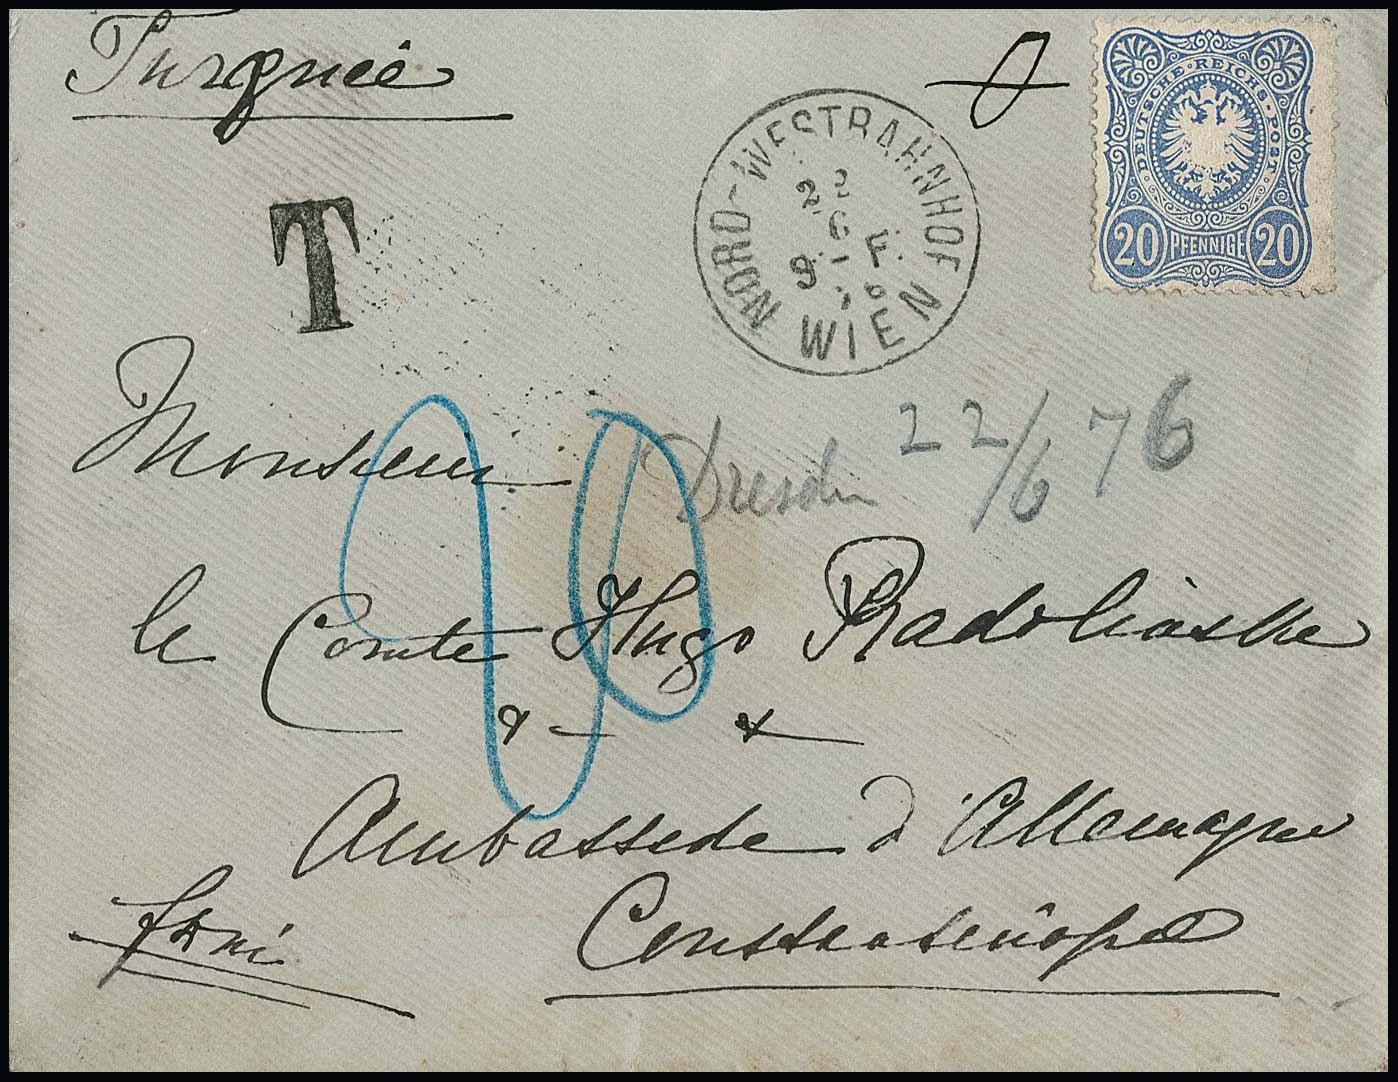 Turquie
DEUTSCHE·REICHS-POST
20 PFENNIGE 20
NORD-WESTBAHNHOF
22
6
9 - F.
76
WIEN
T
Monsieur
20
Dresden 22/6 76
le Comte Hugo Radolinske
Ambassade d'Allemagne
Constantinople